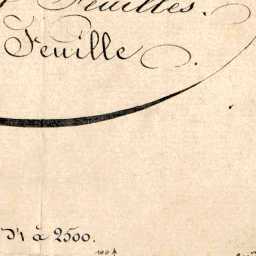 Feuilles.
Feuille
à 2500.